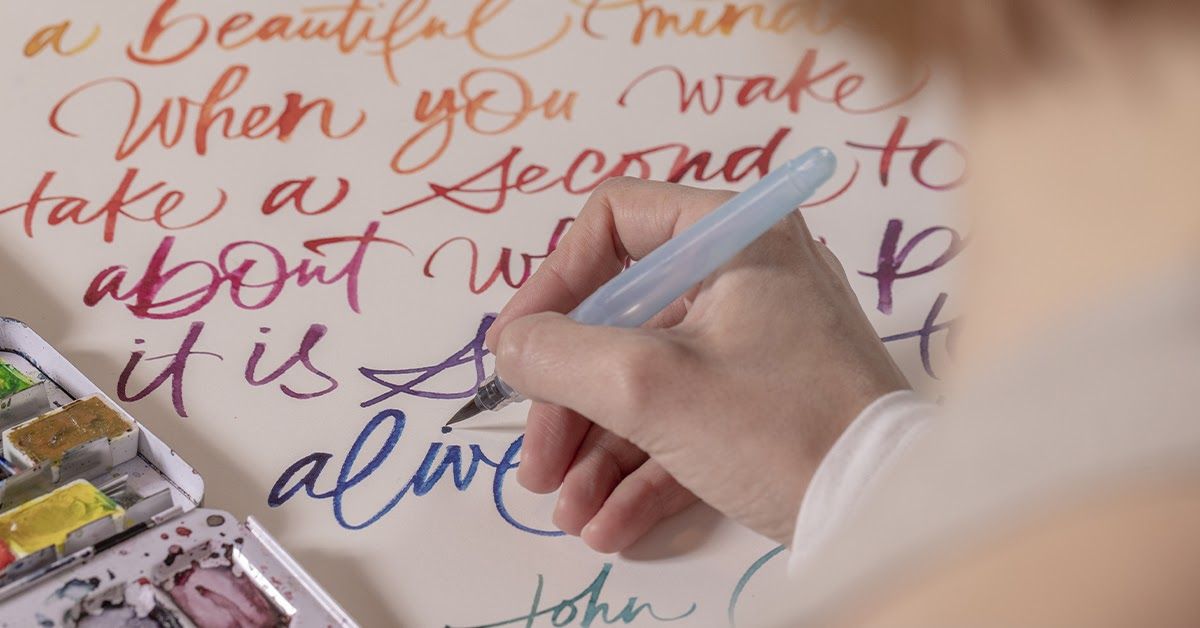 a beautiful mind
When you wake
take a second to
about
it is
alive
John